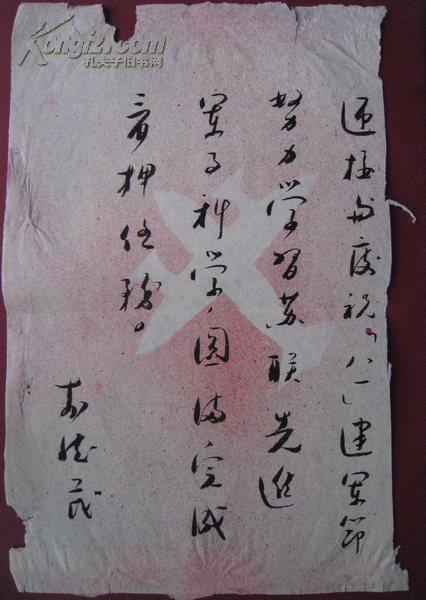 Kongfz.com
孔夫子旧书网
迎接与庆祝「八一」建军节
努力学习苏联先进
军事科学,圆满完成
看押任务。